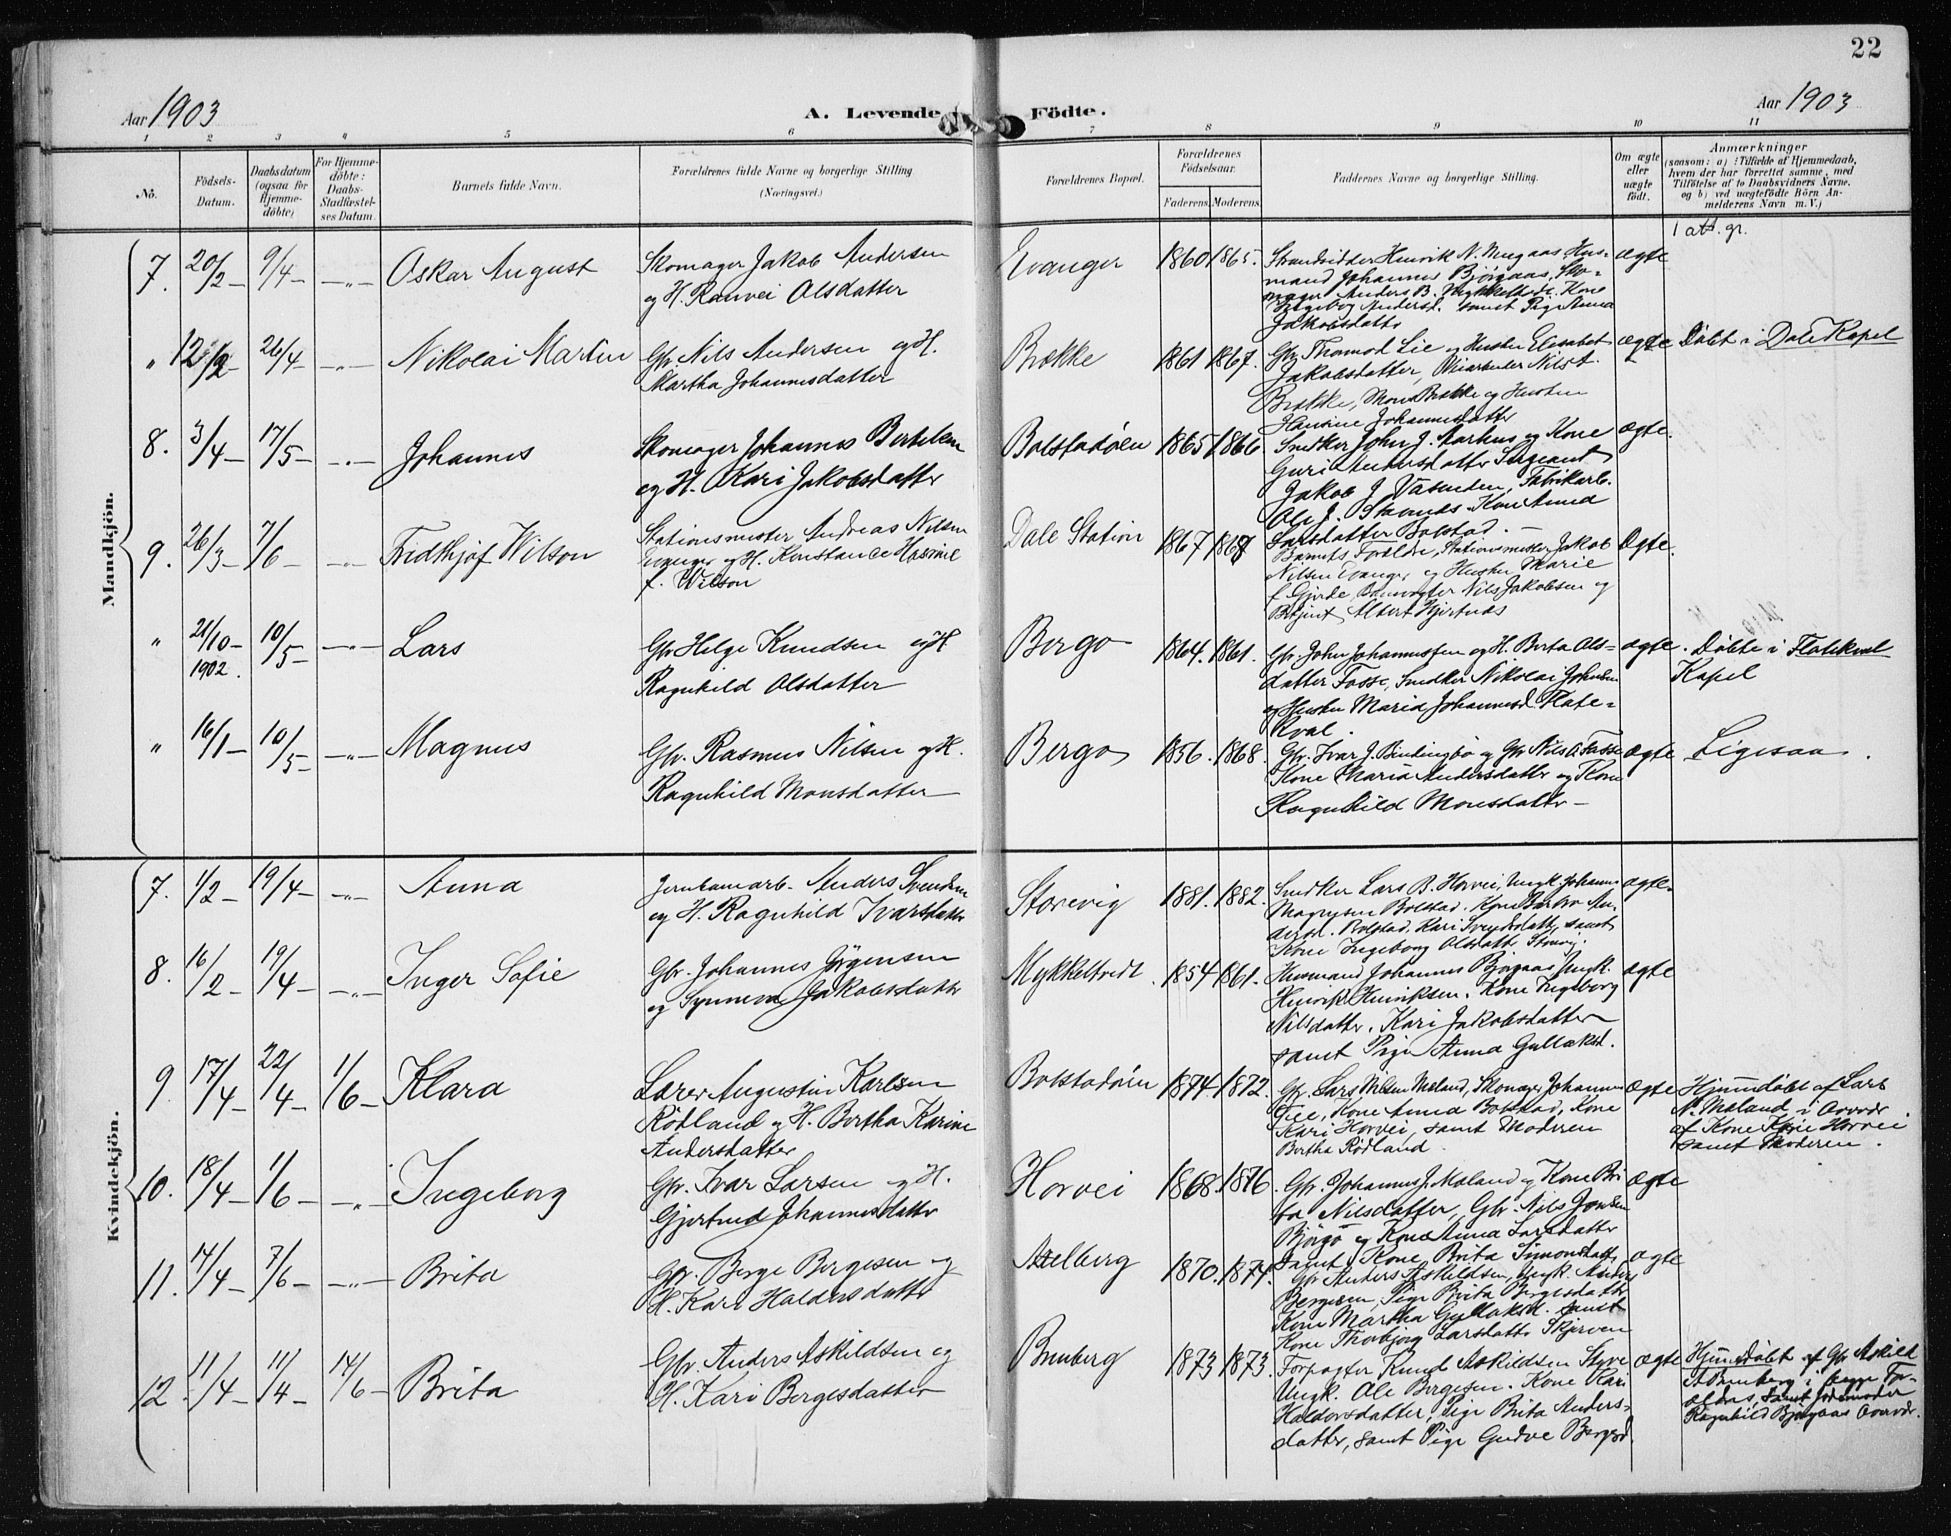 22
Aar 1903
A. Levende Födte.
Aar 1903
1 2 3 4 5 6 7 8 9 10 11
No.
Födsels-Datum.
Daabsdatum (ogsaa for Hjemme-döbte)
For Hjemme-döbte: Daabs-Stadfæstel-ses Datum.
Barnets fulde Navn.
Forældrenes fulde Navne og borgerlige Stilling (Næringsvei.)
Forældrenes Bopæl.
Forældrenes Födselsaar.
Faderens. Moderens.
Faddernes Navne og borgerlige Stilling.
Om ægte eller uægte født.
Anmærkninger
(saasom: a) Tilfælde af Hjemmedaab,
hvem der har forrettet samme, med
Tilföielse af to Daabsvidners Navne,
og b) ved uægtefödte Börn An-
melderens Navn m. V.)
1 att. gr.
Mandkjön.
7. 20/2 – 9/4 – –"– Oskar August
Skomager Jakob Andersen
og H. Ranvei Olsdatter
Evanger 1860 1865.
Strandsidder Henrik N. Mugaas Hus-
mand Johannes Bjørgaas, Sko-
mager Anders B. Kone
Ingebor Andersd. samt Pige Anna
Jakobsdatter
ægte
" 12/2 – 26/4 – –"– Nikolai Martin
Gbr. Nils Andersen og H.
Martha Johannesdatter
Brække 1861 1867.
Gbr. Thomod Lie og Hustru Elisabet
Jakobsdatter, Nils A.
Brække, Mons Brække og Hustru
Hansine Johannesdatter
ægte Döbt i Dale Kapel
8. 3/4 – 17/5 – –"– Johannes
Skomager Johannes Bertelsen
og H. Kari Jakobsdatter
Bolstadøen 1865 1866
Snedker John J. Aarhus og Kone
Guri Andersdatter Sergeant
Jakob J. Vasenden, Fabrikarb.
Ole J. Kone Anna
Larsdatter Bolstad.
ægte.
9. 26/3 – 7/6 – –"– Fridthjof Wilson
Stationsmester Andreas Nilsen
Evanger og H. Konstance Hasine
f. Wilson
Dale Station 1867 1867
Barnets Foreldre, Stationsmester Jakob
Nilsen Evanger og Hustru Marie
f. Gjerde, Banevogter Nils Jakobsen og
Betjent Albert Hjertnæs
Ægte.
" 21/10 – 1902. 10/5 – –"– Lars
Gbr Helge Knudsen og H
Ragnhild Olsdatter
Bergo 1864. 1861.
Gbr. John Johannessen og H. Berta Ols-
datter Fosse, Snedker Nikolai Johnsen
og Hustru Maria Johannesd. Flate-
kval.
ægte. Döbte i Flatekval
Kapel
" 16/1 – 10/5 – –"– Magnus
Gbr. Rasmus Nilsen og H.
Ragnhild Monsdatter
Bergo 1856. 1868.
Gbr. Ivar J. Bindingbø og Gbr Nils A. Fosse
Kone Maria Andersdatter og Kone
Ragnhild Monsdatter –
ægte Ligesaa.
Kvindekjön.
7. 1/2 – 19/4 – –"– Anna
Jernbanearb. Anders Svendsen
og H. Ragnhild Ivarsdatter
Storevig 1881. 1882.
Snedker Lars B. Horvei, Ungk. Johannes
Magnusen Bolstad. Kone Barbro An-
dersd. Bolstad. Kari Svendsdatter, samt
Kone Ingeborg Olsdatter Storevig.
ægte.
8. 16/2 – 19/4 – –"– Inger Sofie
Gbr. Johannes Jørgensen
og Synneva Jakobsdatter
Mykkeltvedt. 1854 1861.
Husmand Johannes Bjørgaas, Ungk.
Henrik Henriksen. Kone Ingeborg
Nilsdatter. Kari Jakobsdatter
samt Pige Anna Gullaksd.
ægte
9. 17/4 – 22/4 – 1/6 – Klara
Lærer Augustin Karlsen
Rödland og H. Bertha Karine
Andersdatter
Bolstadøen 1874. 1872.
Gbr. Lars Nilsen Mæland, Skomager Johannes
Tiee, Kone Anna Bolstad, Kone
Kari Horvei, samt Moderen
Bertha Rödland.
Ægte Hjemmdöbt af Lars
N. Mæland i Overvær.
af Kone Karie Horvei
samt Moderen.
10. 18/4 – 1/6 – –"– Ingeborg
Gbr. Ivar Larsen og H.
Gjertrud Johannesdatter
Horvei 1868. 1876.
Gbr. Johannes J. Mæland og Kone Bri-
ta Nilsdatter, Gbr. Nils Jonsen
Björgo og Kone Anna Larsdatter
samt Kone Brita Simonsdatt.
ægte
11. 14/4 – 7/6 – –"– Brita
Gbr. Berge Bergesen og
H. Kari Haldorsdatter
Aelberg 1870. 1874.
Gbr Anders Askildsen, Ungk. Anders
Bergesen, Pige Brita Bergesdatter
Kone Martha Gullaksd. samt
Kone Thorbjørg Larsdatter Skjerven
ægte
12. 11/4 – 11/4 – 14/6 – Brita
Gbr. Anders Askildsen og
H. Kari Bergesdatter
Brunberg 1873 1873.
Forpagter Knud Askildsen Styve
Ungk. Ole Bergesen. Kone Kari
Haldorsdatter, Pige Brita Anders-
datter, samt Pige Gudve Bergesd.
ægte Hjemmdöbt af Gbr Askild
A. Brunberg i begge For-
ældres, samt Jordemoder
Ragnhild Bjørgaas Overvær.